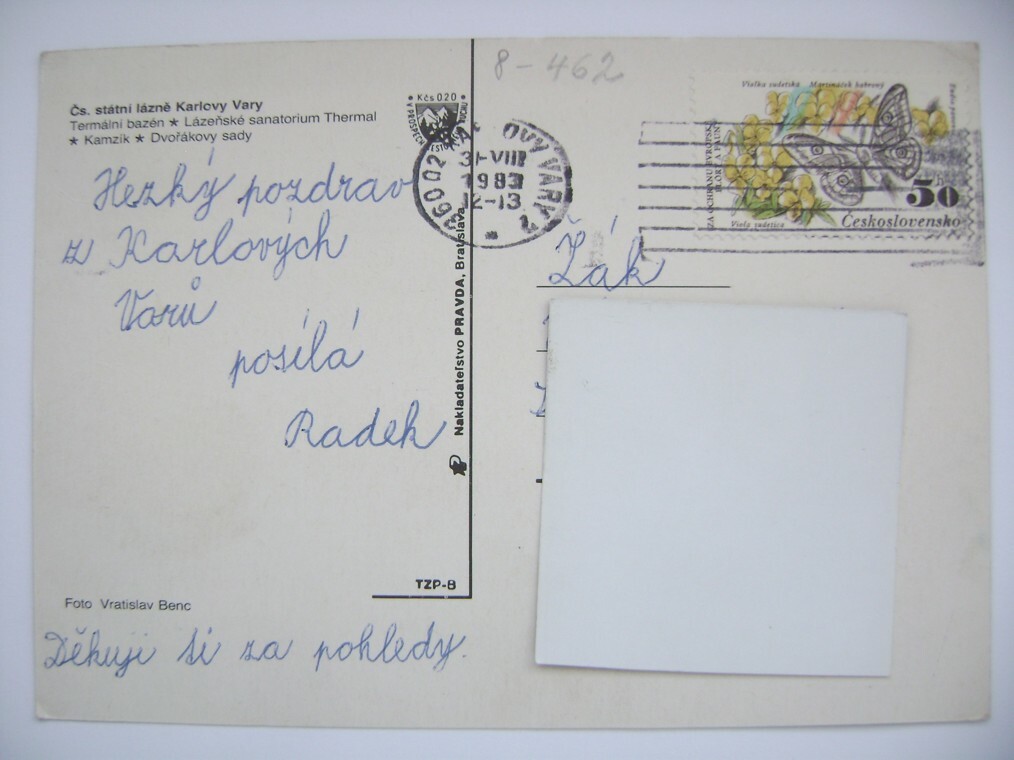 8-462
Čs. státní lázně Karlovy Vary
Termální bazén ★ Lázeňské sanatorium Thermal
★ Kamzík ★ Dvořákovy sady
Hezký pozdrav
z Karlových
Varů
posílá
Radek
Foto Vratislav Benc
Děkuji ti za pohledy.
TZP-8
Nakladateľstvo PRAVDA, Bratislava
Kčs 020
360 02 KARLOVY VARY 2
31-VIII
1983
12-13
Violka sudetská
Viola sudetica
ZA OCHRANU EVROPSKÉ
FLÓRY A FAUNY
50
Československo
Žák